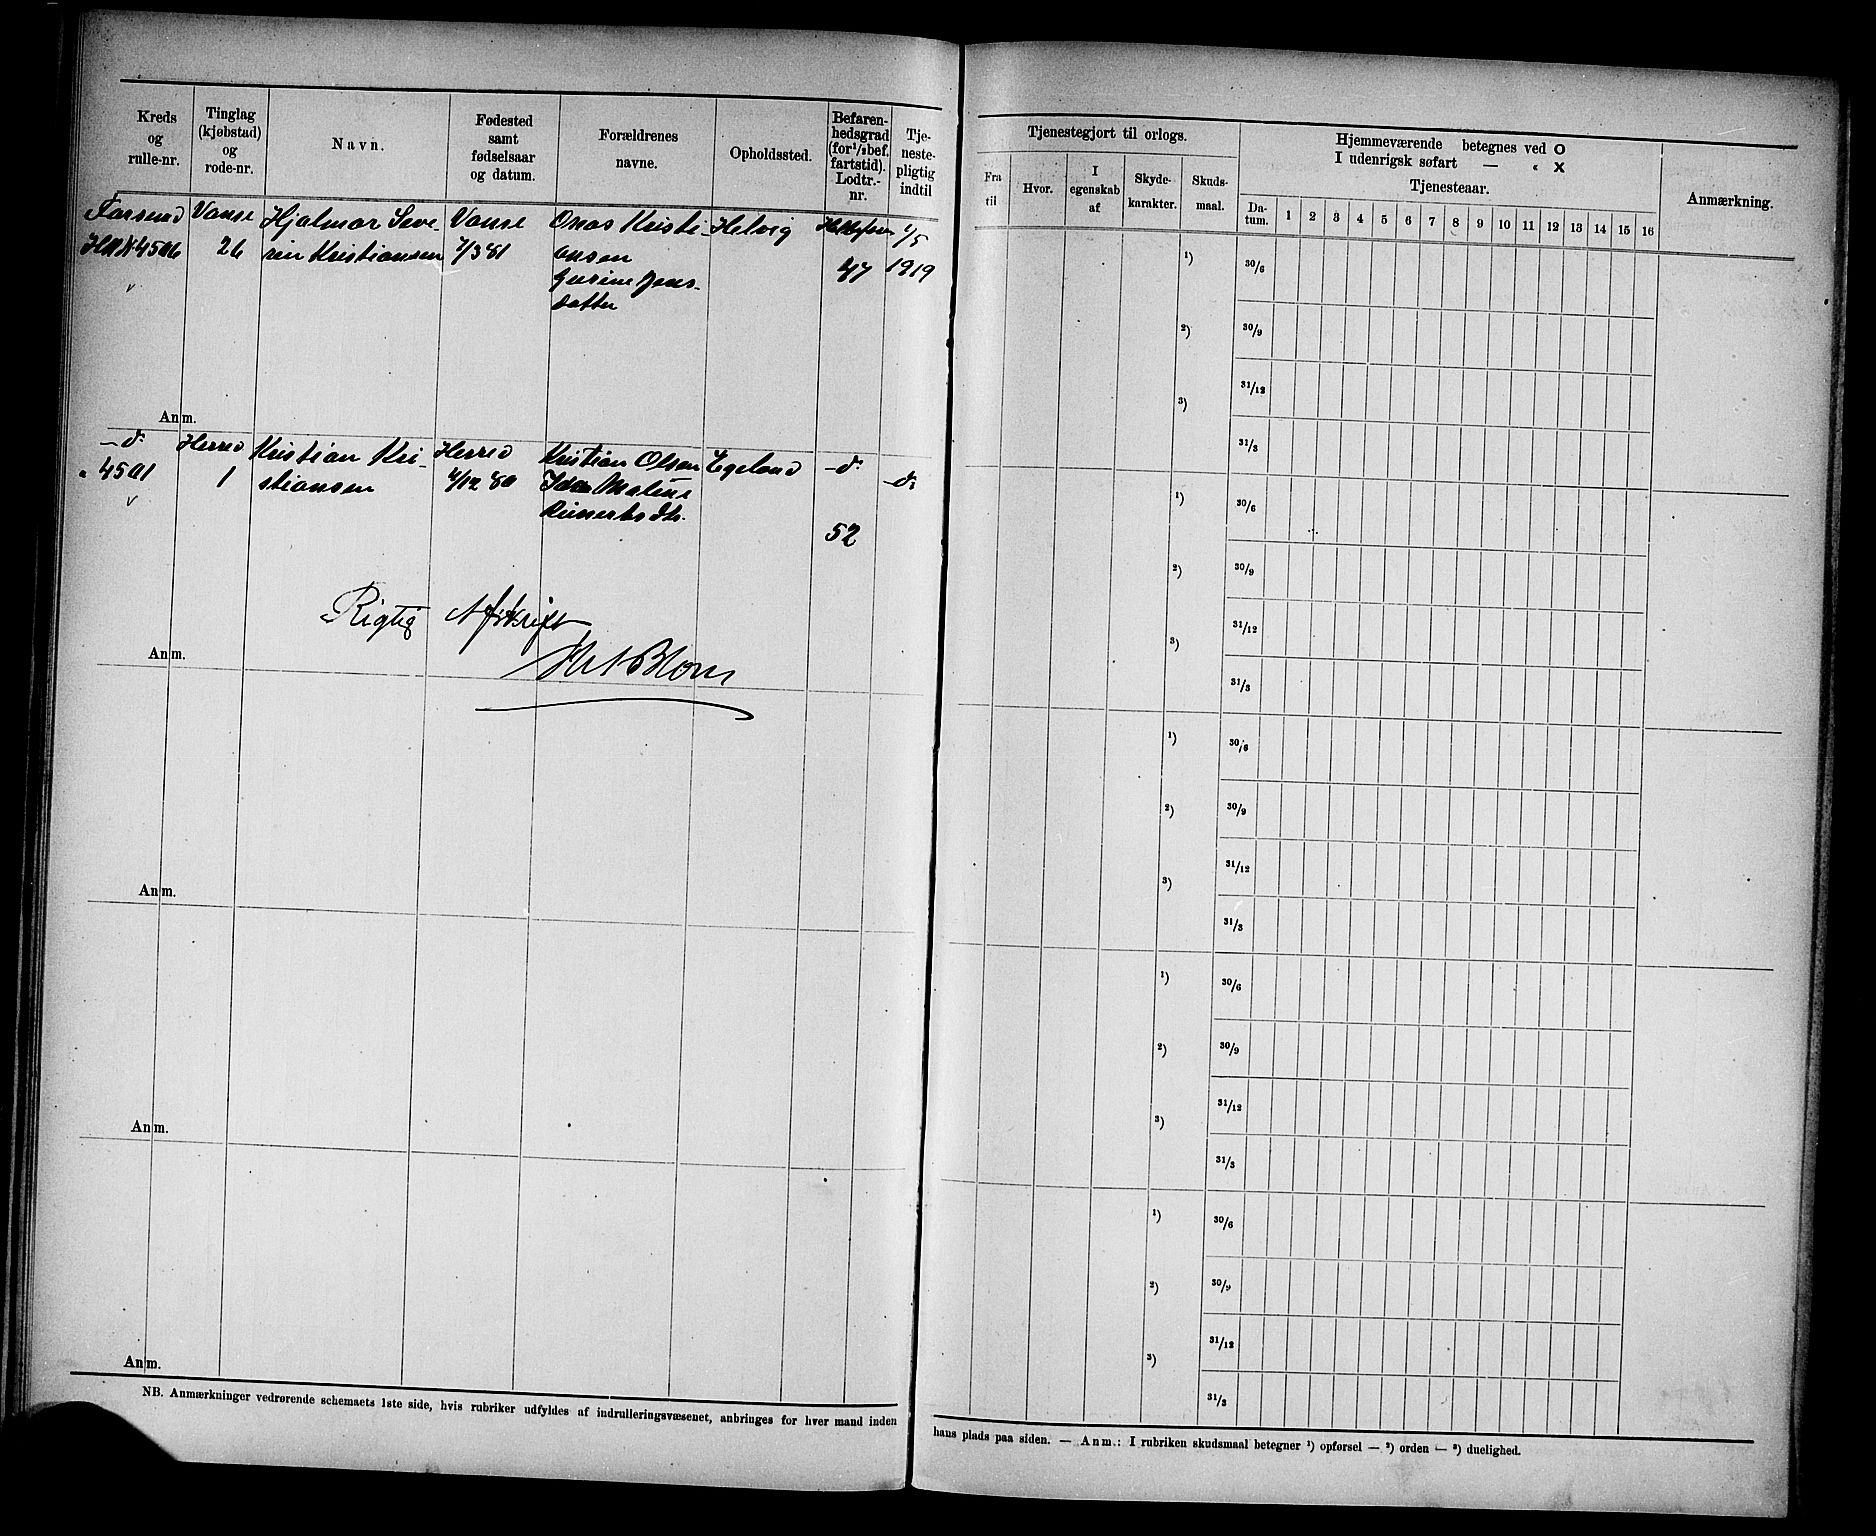 Kreds og rulle-nr.
Tinglag (kjøbstad) og rode-nr.
Navn.
Fødested samt fødselsaar og datum.
Forældrenes navne.
Opholdssted.
Befaren-hedsgrad (for ½ bef. fartstid). Lodtr.-nr.
Tje-neste-pligtig indtil
Tjenestegjort til orlogs.
Fra til
Hvor.
I egenskab af
Skyde-karakter.
Skuds-maal.
Hjemmeværende betegnes ved O
I udenrigsk søfart — " X
Tjenesteaar.
Da-tum. 1 2 3 4 5 6 7 8 9 10 11 12 13 14 15 16
Anmærkning.
Farsund Vanse Hjalmar Seve- Vanse Onas Kristi- Helvig 1/5
4506 26 rin Kristiansen 7/3 81 ansen 47 1919
Gurine Jens-
datter
Anm.
—d: Herred Kristian Kri- Herred Kristian Olsen Egeland —d: —d:
" 4501 1 stiansen /12 80 Ida Maline
dtr. 52
Rigtig Afskrift
Blom
Anm.
Anm.
Anm.
Anm.
1) 30/6
2) 30/9
31/12
3)
31/3
1) 30/6
2) 30/9
31/12
3)
31/3
1) 30/6
2) 30/9
31/12
3)
31/3
1) 30/6
2) 30/9
31/12
3)
31/3
1) 30/6
2) 30/9
31/12
3)
31/3
NB. Anmærkninger vedrørende schemaets 1ste side, hvis rubriker udfyldes af indrulleringsvæsenet, anbringes for hver mand inden
hans plads paa siden. — Anm.: I rubriken skudsmaal betegner ¹) opførsel — ²) orden — ³) duelighed.